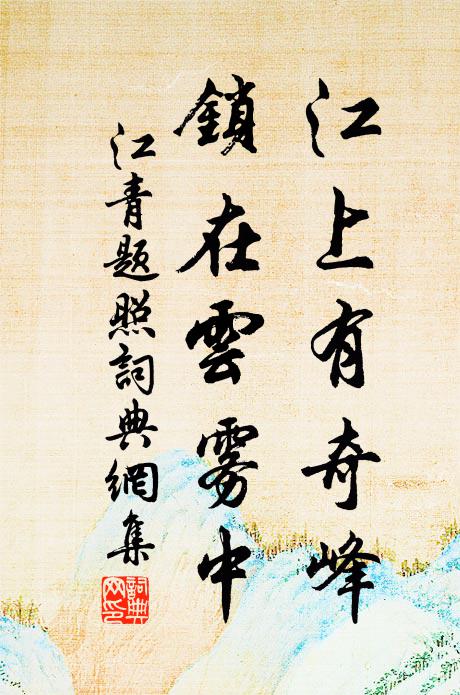 江上有奇峰
鎖在雲雾中
江青题照詞典網集
詞典
网印